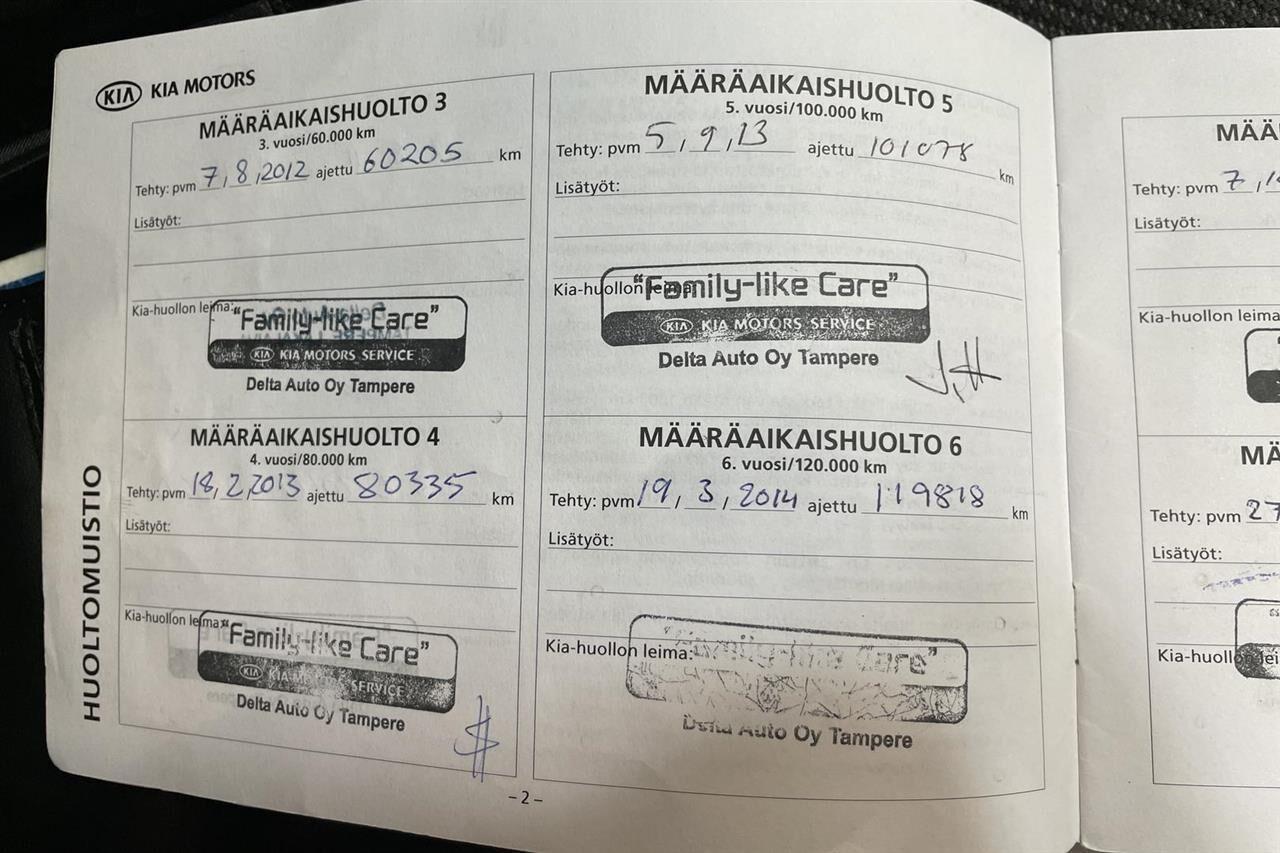 KIA KIA MOTORS
MÄÄRÄAIKAISHUOLTO 3
3. vuosi/60.000 km
Tehty: pvm 7,8,2012 ajettu 60205 km
Lisätyöt:
Kia-huollon leima:
"Family-like Care"
KIA KIA MOTORS SERVICE
Delta Auto Oy Tampere
MÄÄRÄAIKAISHUOLTO 4
4. vuosi/80.000 km
Tehty: pvm 18,2,2013 ajettu 80335 km
Lisätyöt:
Kia-huollon leima:
"Family-like Care"
KIA KIA MOTORS SERVICE
Delta Auto Oy Tampere
HUOLTOMUISTIO
MÄÄRÄAIKAISHUOLTO 5
5. vuosi/100.000 km
Tehty: pvm 5,9,13 ajettu 101078 km
Lisätyöt:
Kia-huollon leima:
"Family-like Care"
KIA KIA MOTORS SERVICE
Delta Auto Oy Tampere
J.H
MÄÄRÄAIKAISHUOLTO 6
6. vuosi/120.000 km
Tehty: pvm 19,3,2014 ajettu 119818 km
Lisätyöt:
Kia-huollon leima:
"Family-like Care"
Delta Auto Oy Tampere
-2-
MÄÄ
Tehty: pvm 7,1
Lisätyöt:
Kia-huollon leima
MÄ
Tehty: pvm 27
Lisätyöt:
Kia-huollon lei